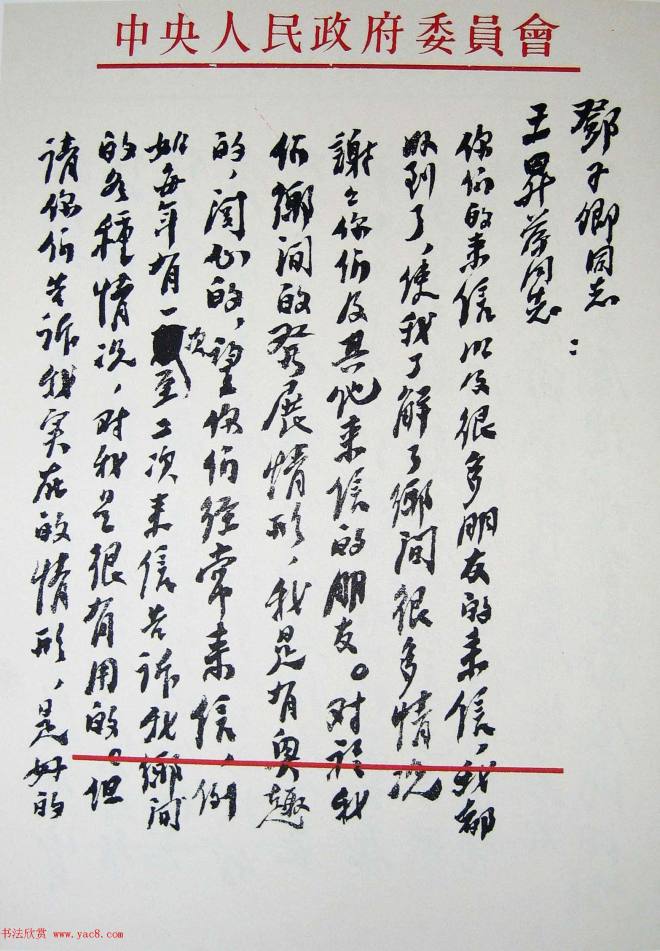 中央人民政府委員會
鄧子卿同志
王昇蓉同志：
你们的来信以及很多朋友的来信，我都
收到了，使我了解了鄉间很多情况
謝〻你们及其他来信的朋友。对於我
们鄉间的发展情形，我是有興趣
的，関心的，望你们经常来信，例
如每年有一次至二次来信告诉我鄉间
的各種情况，对我是很有用的。但
请你们告诉我实在的情形，是好的
书法欣赏 www.yac8.com